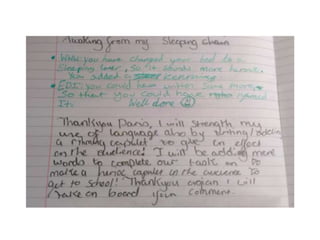 Thanking from my Sleeping
• you have changed your bed to a
Sleeping So it sounds more heroic.
You added a Kenning
• EBI: You could have written some more
So that you could have
It. Well done
Thankyou I will strength my
use of language also by
a rhyming couplet to give an effect
on the audience. I will be adding more
words to complete our task on Do
make a heroic couplet to the audience to
get to school! Thankyou again I will
take on board your comment.